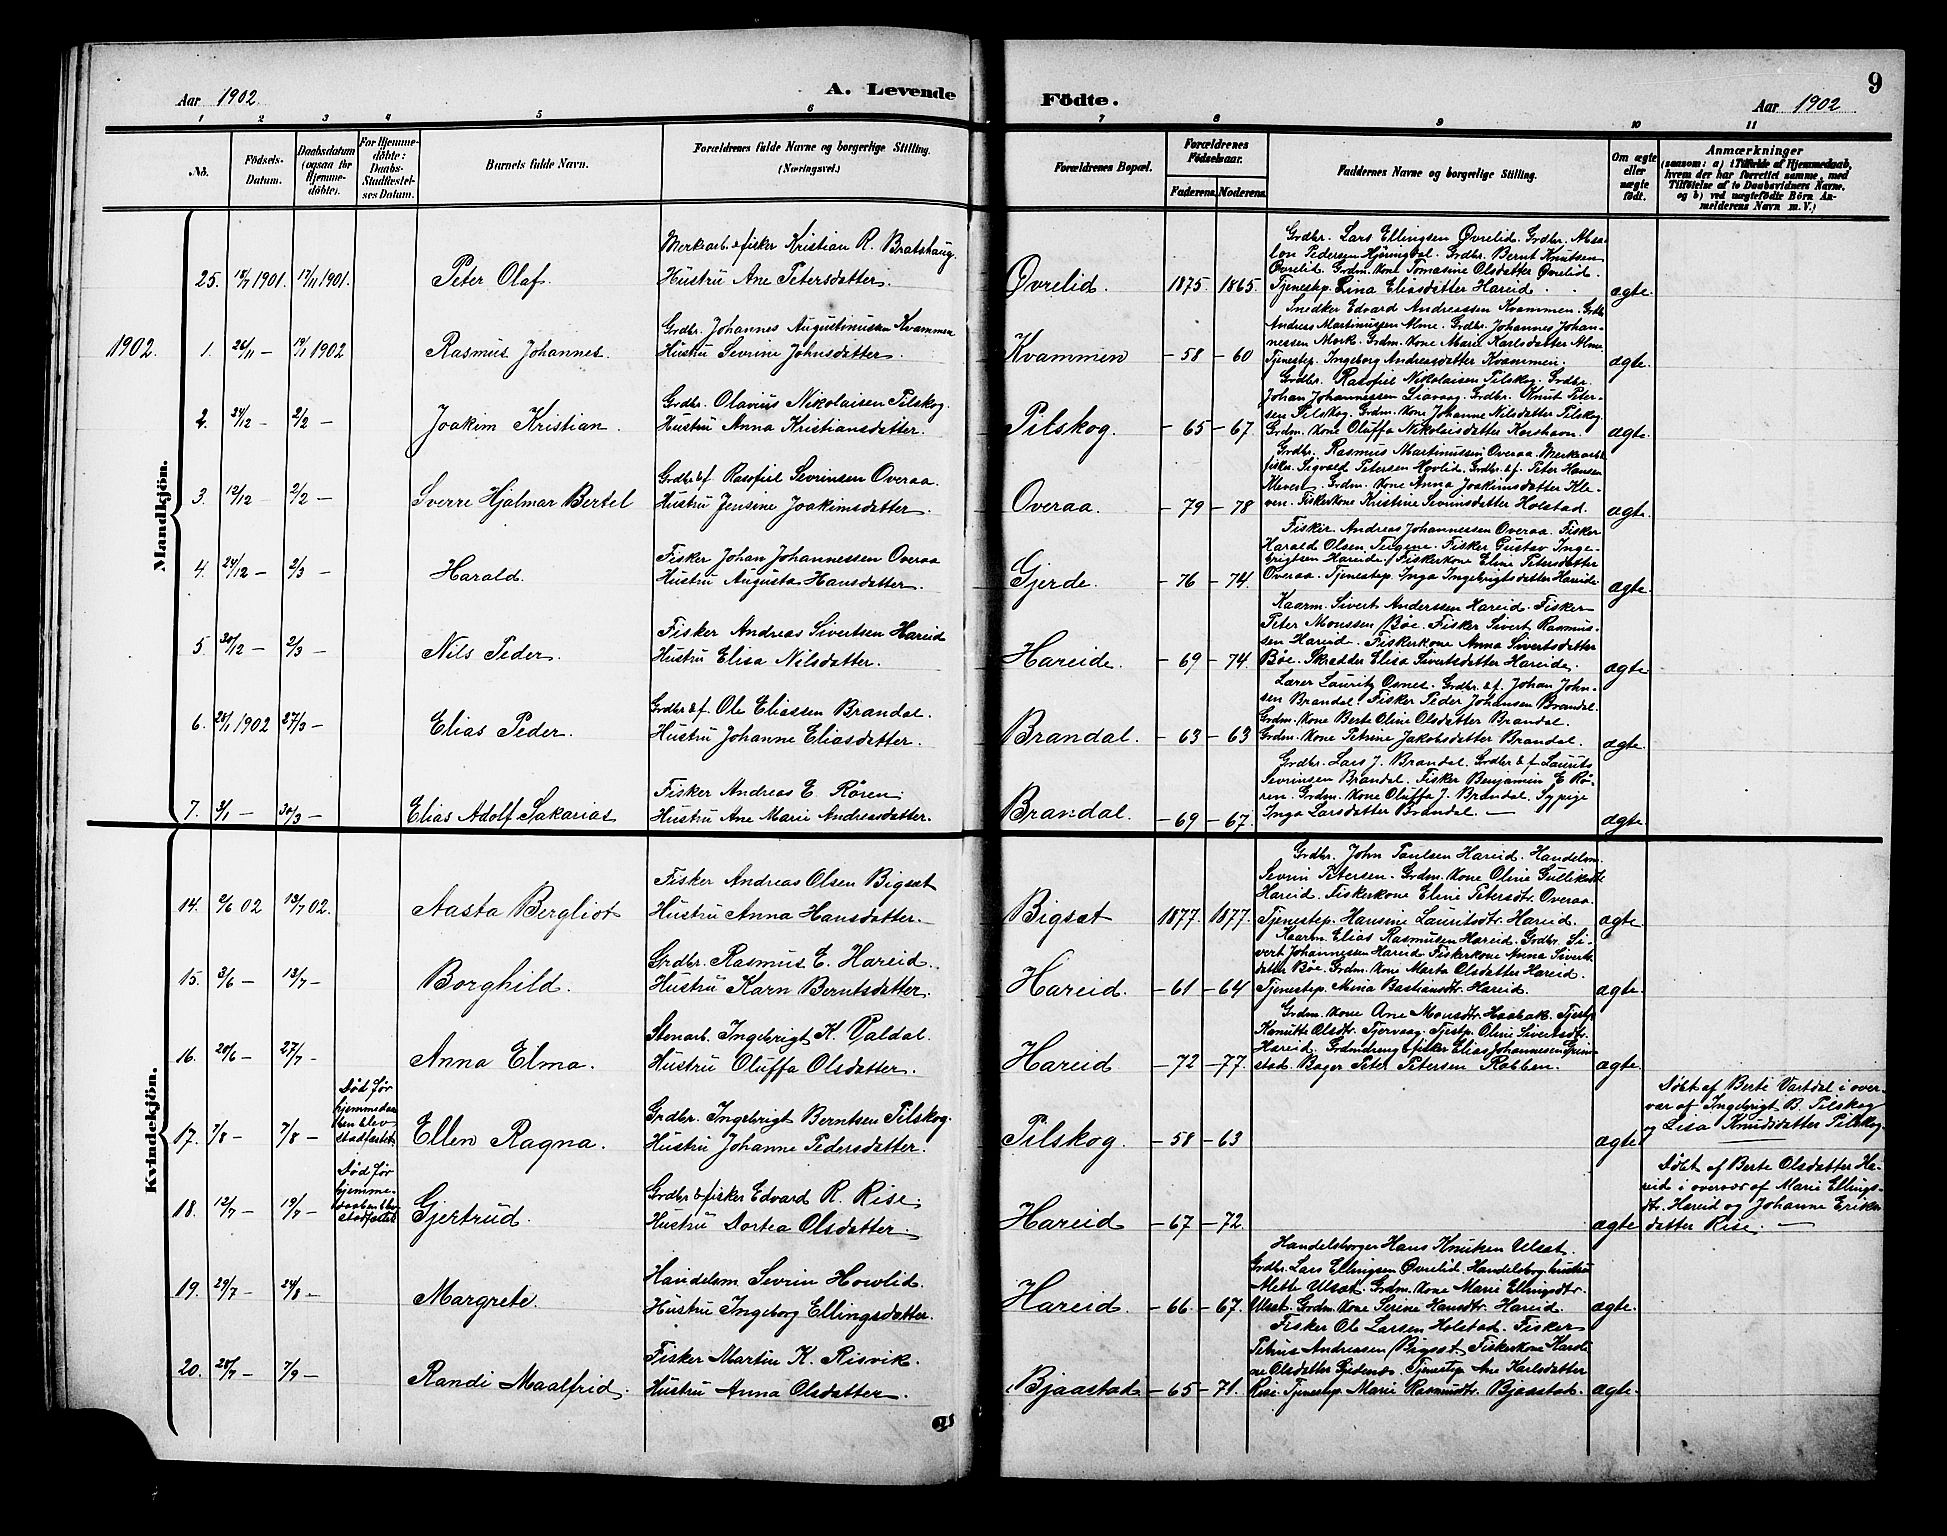 Aar 1902.
A. Levende
Födte.
9
Aar 1902
1 2 3 4 5 6 7 8 9 10 11
No.
Födsels-
Datum.
Daabsdatum
(ogsaa for
Hjemme-
döbte).
For Hjemme-
döbte:
Daabs-
Stadfæstel-
ses Datum.
Barnets fulde Navn.
Forældrenes fulde Navne og borgerlige Stilling.
(Næringsvei.)
Forældrenes Bopæl.
Forældrenes
Födselsaar.
Faderens. Moderens.
Faddernes Navne og borgerlige Stilling.
Om ægte
eller
uægte
födt.
Anmærkninger
(saasom: a) i Tilfælde af Hjemmedaab,
hvem der har forrettet samme, med
Tilföielse af to Daabsvidners Navne,
og b) ved uægtefödte Börn An-
melderens Navn m. V.)
Mandkjön.
25. 18/7 1901. 17/11 1901. Peter Olaf.
Merkearb. & fisker Kristian R. Bratshaug.
Hustru Ane Petersdatter.
Øvrelid. 1875. 1865.
Grdbr. Lars Ellingsen Øvrelid. Grdbr. Absa-
lon Pedersen Hjøringdal. Grdbr. Bernt Knutsen
Øvrelid. Grdm. Kone Tomasine Olsdatter Øvrelid.
Tjenestep. Lina Eliasdatter Hareid.
ægte.
1902.
1. 26/11 — 19/1 1902 Rasmus Johannes.
Grdbr. Johannes Augustinussen Kvammen
Hustru Sevrine Johnsdatter.
Kvammen — 58 — 60
Snedker Edvard Andreassen Kvammen. Grdb.
Andreas Martinussen Alme. Grdbr. Johannes Johan-
nessen Mork. Grdm. Kone Marie Karlsdatter Alme.
Tjenestep. Ingeborg Andreasdatter Kvammen.
ægte.
2. 24/12 — 2/2 — Joakim Kristian.
Grdbr. Olavius Nikolaisen Pilskog.
Hustru Anna Kristiansdatter.
Pilskog. — 65 — 67.
Grdbr. Rasofiel Nikolaisen Pilskog. Grdbr.
Johan Johannessen Liavaag. Grdbr. Knut Peter-
sen Pilskog. Grdm. Kone Johanne Nilsdatter Pilskog
Grdm. Kone Oluffa Nikolaisdatter Korshavn.
ægte.
3. 12/12 — 2/2 — Sverre Hjalmar Bertel
Grdbr & f. Rasofiel Sevrinsen Overaa.
Hustru Jensine Joakimsdatter.
Overaa. — 79 — 78
Grdbr. Rasmus Martinussen Overaa. Merkearb &
fisker. Sigvald Petersen Hovlid. Grdbr. & f. Peter Hansen
Kleven. Grdm. Kone Anna Joakimsdatter Kle-
ven. Fiskerkone Kristine Sevrinsdatter Holstad.
ægte.
4. 24/12 — 2/3 — Harald.
Fisker Johan Johannessen Overaa
Hustru Augusta Hansdatter.
Gjerde. — 76 — 74.
Fisker. Andreas Johannessen Overaa. Fisker
Harald Olsen Teigene. Fisker Gustav Inge-
brigtsen Hareide. Fiskerkone Eline Petersdatter
Overaa. Tjenestep. Inga Ingebrigtsdatter Hareide
ægte.
5. 30/12 — 2/3 — Nils Peder.
Fisker Andreas Sivertsen Hareid
Hustru Elisa Nilsdatter.
Hareide. — 69 — 74.
Kaarm. Sivert Anderssen Hareid. Fisker
Peter Monssen Bøe. Fisker Sivert Rasmus-
sen Hareid. Fiskerkone Anna Sivertsdatter
Bøe. Skrædder Elisa Sivertsdatter Hareide.
ægte.
6. 28/1 1902 27/3 — Elias Peder.
Grdbr & f. Ole Eliassen Brandal.
Hustru Johanne Eliasdatter.
Brandal. — 63 — 63
Lærer Lauritz Osnes. Grdbr. & f. Johan John-
sen Brandal. Fisker Peder Johansen Brandal.
Grdm. Kone Berte Oline Olsdatter Brandal.
Grdm. Kone Petrine Jakobsdatter Brandal.
ægte.
7. 3/1 — 30/3 — Elias Adolf Sakarias
Fisker Andreas E. Røren.
Hustru Ane Marie Andreasdatter.
Brandal. — 69 — 67.
Grdbr. Lars J. Brandal. Grdbr & f. Laurits
Sevrinsen Brandal. Fisker Benjamin E. Rø-
ren. Grdm. Kone Oluffa J. Brandal. Sypige
Inga Larsdatter Brandal. —
ægte.
Kvindekjön.
14. 9/6 02 13/7 02. Aasta Bergliot
Fisker Andreas Olsen Bigset
Hustru Anna Hansdatter.
Bigset 1877. 1877.
Grdbr. John Paulsen Hareid. Handelsm.
Sevrin Petersen. Grdm. Kone Oline Gulliksdtr
Hareid. Fiskerkone Eline Petersdtr. Overaa.
Tjenestep. Hansine Lauritsdtr. Hareid.
ægte.
15. 3/6 — 13/7 — Borghild.
Grdbr. Rasmus E. Hareid.
Hustru Karn Berntsdatter.
Hareid. — 61 — 64
Kaarm. Elias Rasmusen Hareid. Grdbr. Si-
vert Johannessen Hareid. Fiskerkone Anna Siverts-
datter Bøe. Grdm. Kone Marta Olsdatter Hareid.
Tjenestep. Mina Bastiansdtr. Hareid.
ægte.
16. 20/6 — 27/7 — Anna Elma.
Stenarb. Ingebrigt K. Valdal.
Hustru Oluffa Olsdatter.
Hareid — 72 — 77.
Grdm. Kone Ane Monsdtr. Haabak. Tjestp.
Kamitte Olsdtr. Tjervaag. Tjestp. Oline Sivertsdtr.
Hareid. Grdmdreng & fisker Elias Johannesen Grim-
stad. Bager Peter Petersen Rabben.
ægte.
17. 7/8 — 7/8 —
Død før
hjemmedaa-
ben blev
stadfæstet
Ellen Ragna.
Grdbr. Ingebrigt Berntsen Pilskog.
Hustru Johanne Pedersdatter.
Pilskog. — 58 — 63
ægte
Døbt af Berte Vartdal i over-
vær af Ingebrigt B. Pilskog
og Lisa Knudsdatter Pilskog.
18. 12/7 — 19/7 —
Død før
hjemme-
daaben blev
stadfæstet
Gjertrud.
Grdbr & fisker Edvard R. Rise.
Hustru Dortea Olsdatter.
Hareid — 67 — 72.
ægte
Døbt af Berte Olsdatter Ha-
reid i overvær af Marie Ellings-
dtr. Hareid og Johanne Eriks-
datter Rise. —
19. 29/7 — 24/8 — Margrete.
Handelsm. Sevrin Howlid.
Hustru Ingeborg Ellingsdatter.
Hareid. — 66 — 67.
Handelsborger Hans Knutsen Ulset.
Grdbr. Lars Ellingsen Øvrelid. Handelsborg. hustru
Mette Ulset. Grdm. Kone Marie Ellingsdtr.
Ulset. Grdm. Kone Serine Hansdtr. Hareid.
ægte.
20. 28/7 — 7/9 — Randi Maalfrid.
Fisker Martin K. Risvik.
Hustru Anna Olsdatter.
Bjaastad — 65 — 71.
Fisker Ole Larsen Holstad. Fisker
Petrus Andreasen Bigset. Fiskerkone Kardi-
ne Olsdatter. Tjenestep. Ane Karlsdatter
Rise. Tjenestep. Marie Rasmusdtr. Bjaastad.
ægte.